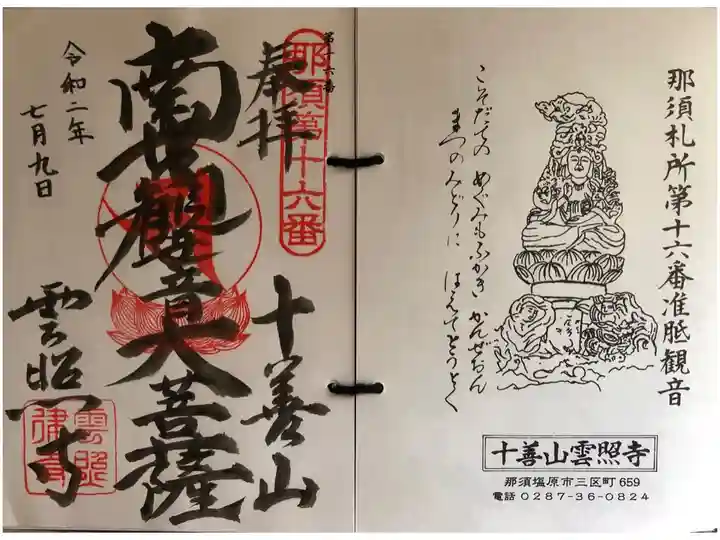 那須札所第十六番准胝観音
こそだての めぐみもふかき かんぜおん
まつのみどりに はえてとうとく
十善山雲照寺
那須塩原市三区町 659
電話 0287-36-0824
第十六番
那須第十六番
奉拝
十善山
南無観世音大菩薩
雲照寺
令和二年
七月九日